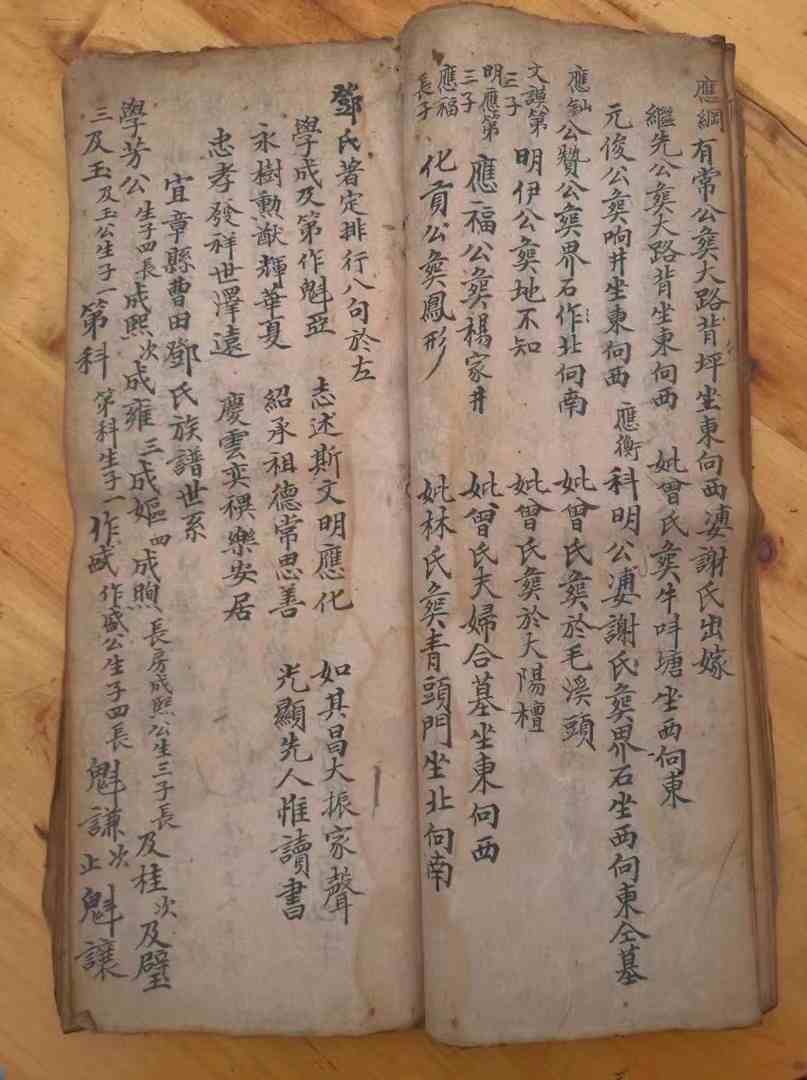 應綱 有常公葬大路背坪坐東向西 凄謝氏出嫁
繼先公葬大路背坐東向西 妣曾氏葬牛吽塘坐西向東
元俊公葬响井坐東向西 應衡 科明公凄謝氏葬界石坐西向東仝墓
公贊公葬界石作北向南 妣曾氏葬於毛溪頭
文謨第三子 明伊公葬地不知 妣曾氏葬於大陽檀
明應第三子 應福公葬楊家井 妣曾氏夫婦合墓坐東向西
應福長子 化貢公葬鳳形 妣林氏葬青頭門坐北向南
鄧氏著定排行八句於左
學成及第作魁亞 志述斯文明應化 如其昌大振家聲
永樹勳猷輝華夏 紹承祖德常思善 光顯先人惟讀書
忠孝發祥世澤遠 慶雲奕禩樂安居
宜章縣曹田鄧氏族譜世系
學芳公 生子四長 成熙 次 成雍 三 成嫗 四 成煦 長房成熙公生三子長 及桂 次 及璧
三 及玉 及玉公生子一 第科 第科生子一 作盛 作盛公生子四長 魁謙 次 魁讓